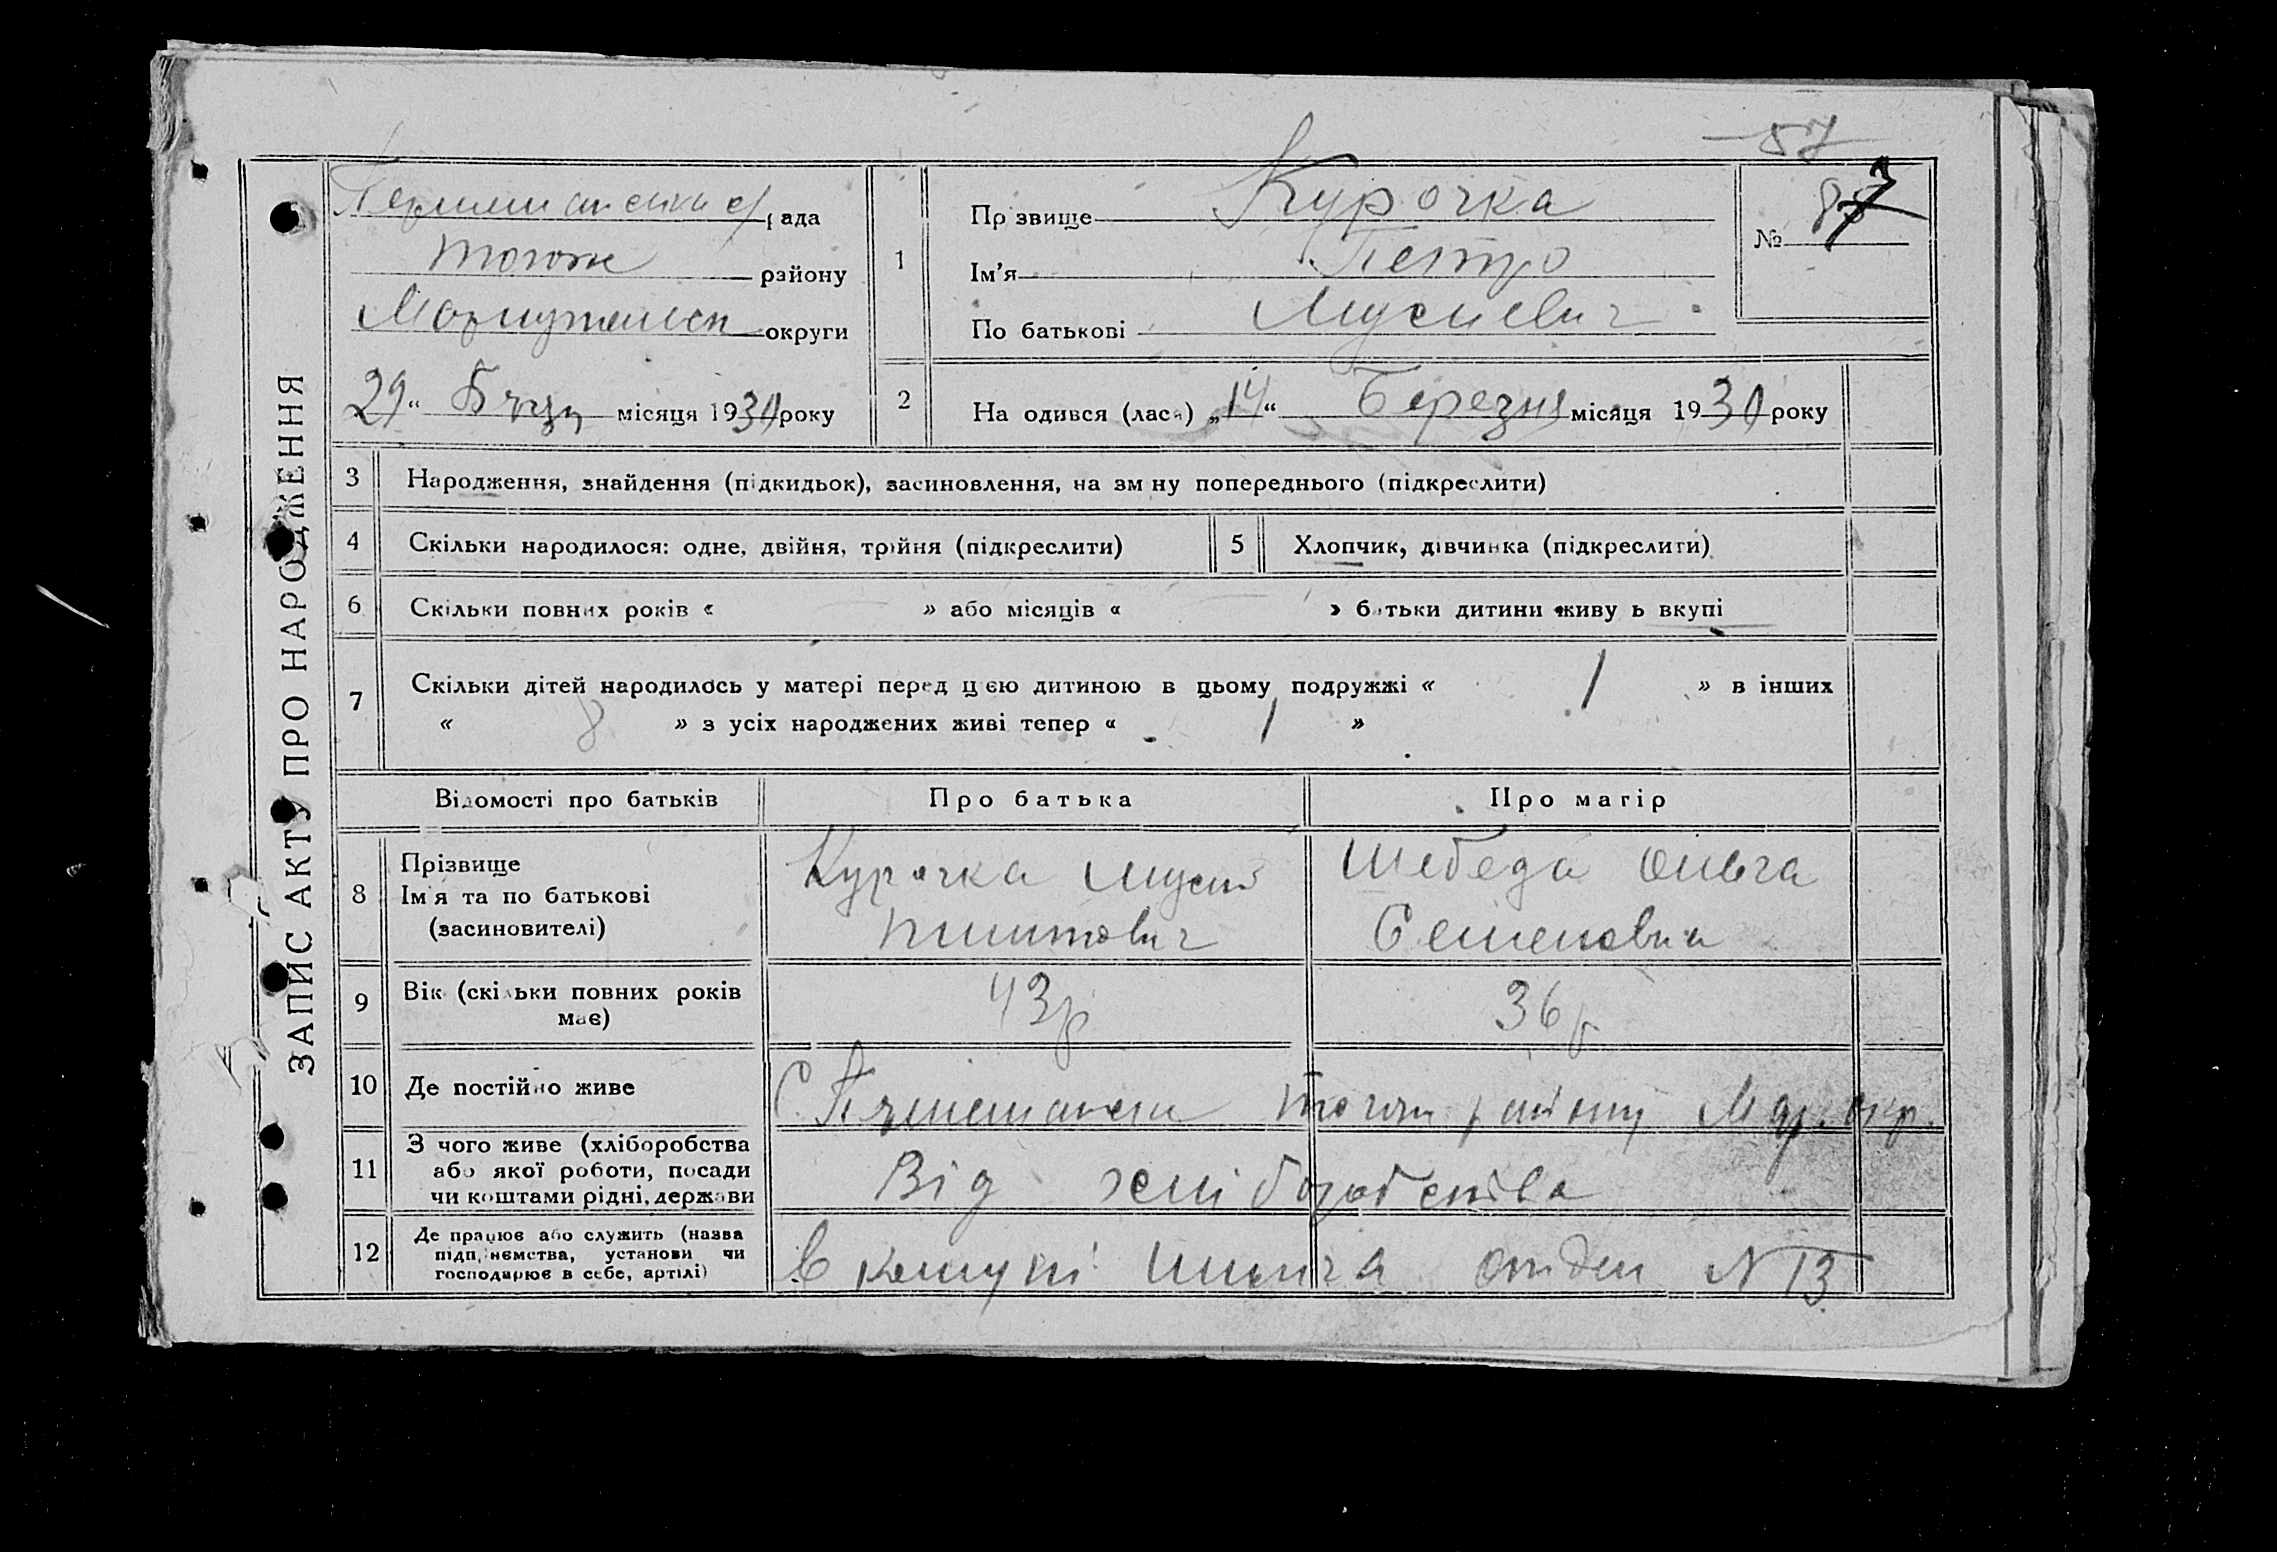 57
ЗАПИС АКТУ ПРО НАРОДЖЕННЯ
рада
району
округи
29 “ місяця 1930 року
1
Прізвище Курочка
Ім’я Петро
По батькові Мусиевич
№ 87
2
Народився (лася) „14“ Березня місяця 1930 року
3 Народження, знайдення (підкидьок), засиновлення, на зміну попереднього (підкреслити)
4 Скільки народилося: одне, двійня, трійня (підкреслити)
5 Хлопчик, дівчинка (підкреслити)
6 Скільки повних років « » або місяців « » батьки дитини живуть вкупі
7 Скільки дітей народилось у матері перед цією дитиною в цьому подружжі « 1 » в інших
« 8 » з усіх народжених живі тепер « 1 »
Відомості про батьків
Про батька
Про матір
8 Прізвище
Ім’я та по батькові
(засиновителі)
Курочка Мусий
Шебеда Ольга
Семеновна
9 Вік (скільки повних років
має)
43 р
36 р
10 Де постійно живе
С. району Мар. окр.
11 З чого живе (хліборобства
або якої роботи, посади
чи коштами рідні, держави
Від хліборобства
12 Де працює або служить (назва
підприємства, установи чи
господарює в себе, артілі)
в комуні отдел N 13